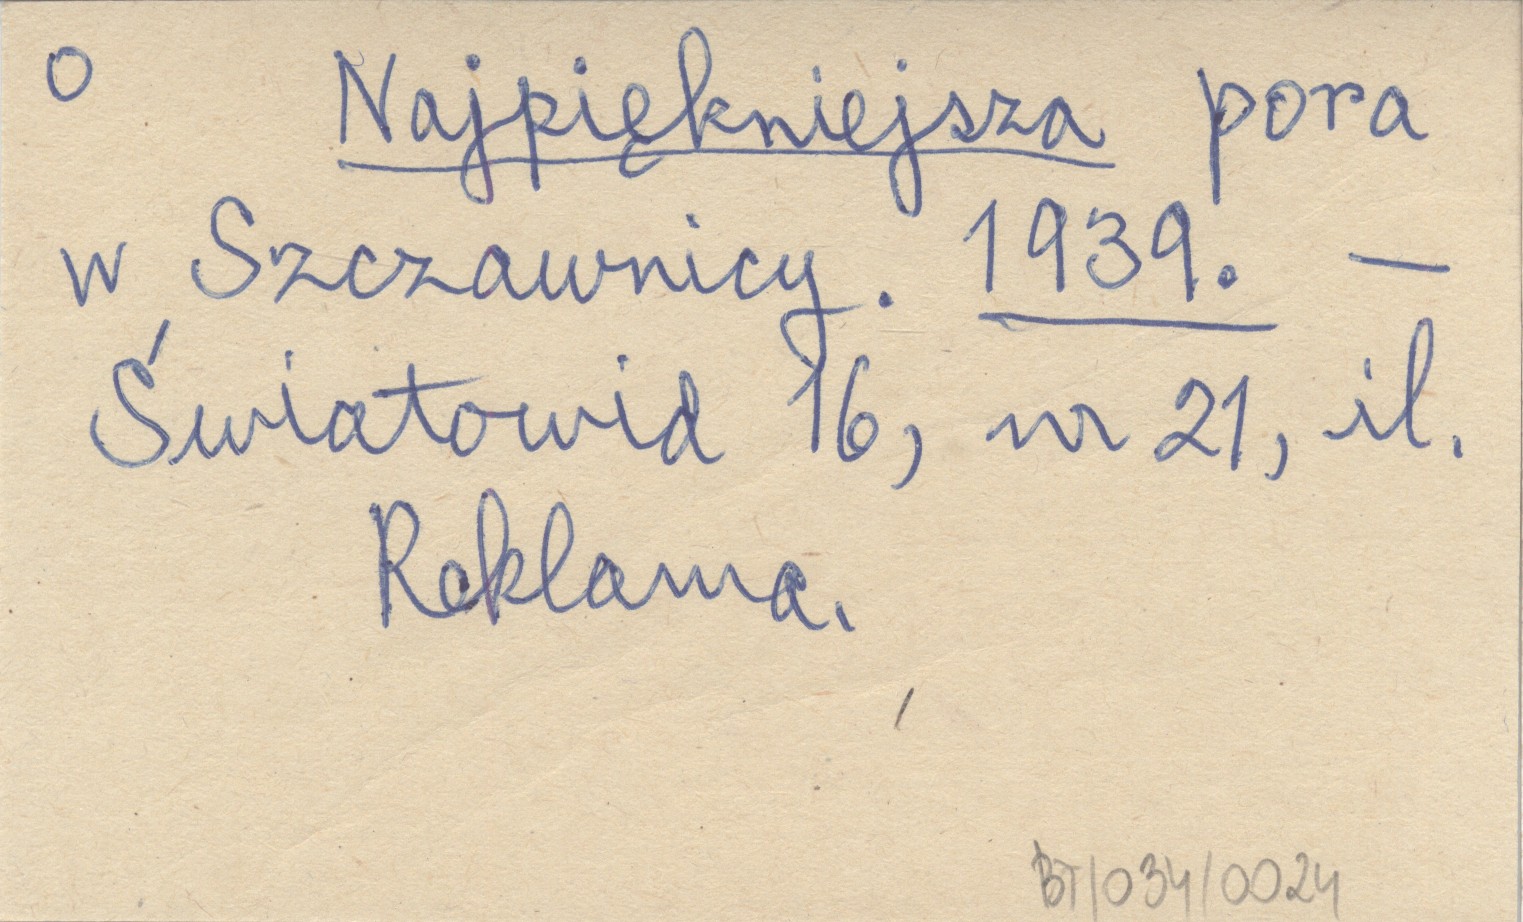 o Najpiękniejsza pora
w Szczawnicy. 1939. —
Światowid 16, nr 21, il.
Reklama.
BT/034/0024